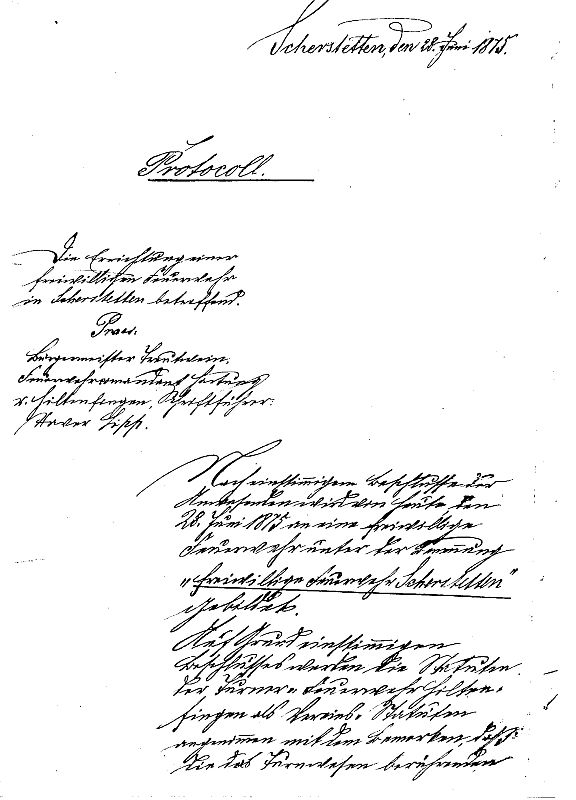 Scherstetten, den 28. Juni 1875.
Protocoll.
Die Errichtung einer
freiwilligen Feuerwehr
in Scherstetten betreffend.
Praes.
Bürgermeister Trautwein.
Feuerwehrcommandant Hartung
v. Hiltenfingen, Schriftführer:
Xaver Lipp.
Nach einstimmigem Beschlusse der
Anwesenden wird von heute den
28. Juni 1875 an eine freiwillige
Feuerwehr unter der Benennung
"Freiwillige Feuerwehr Scherstetten"
gebildet.
Auf Grund einstimmigen
Beschlusses werden die Statuten
der Turner-Feuerwehr Hilten-
fingen als Vereins-Statuten
angenommen mit dem Bemerken, daß
die das Turnwesen berührenden